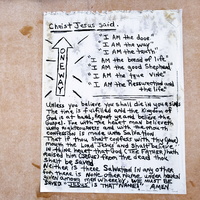 Christ Jesus said.
ONE WAY
"I AM the door
"I AM the way
"I AM the truth"
"I AM the bread of life"
"I AM the good Shepherd"
"I AM the true vine"
"I AM the Resurrection and
the life"
Unless you believe you shall die in your sins
The time is fulfilled and the Kingdom of
God is at hand, repent ye and believe the
Gospel. For with the heart man believeth
unto righteousness and with the mouth
confession is made unto Salvation
That if thou shalt confess with thy mouth
the Lord Jesus and shalt believe
in thine heart that God the Father hath
raised him from the dead thou
shalt be saved
Neither is there Salvation in any other
for there is none other name under heaven
given among men whereby we must be
saved - JESUS IS THAT NAME. AMEN